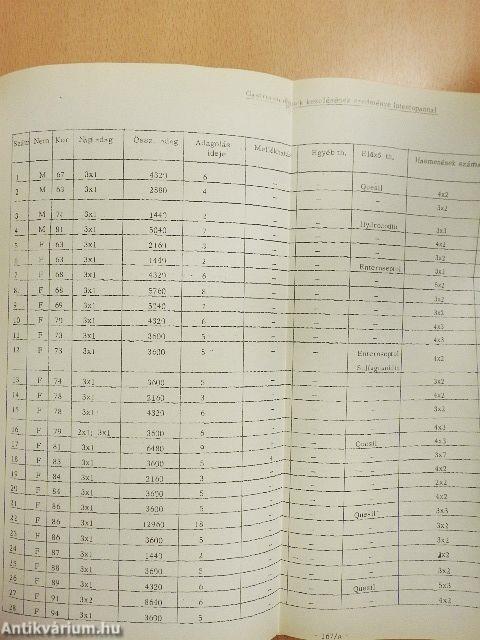 kezelésének eredménye Intestopannal
Szám Nem Kor Napi adag Össz. adag Adagolás ideje Mellékhatás Egyéb th. Előző th. Hasmenések száma
1 M 67 3x1 4320 6 - - Quesil 4x2
2 M 63 3x1 2880 4 - - - 3x2
3 M 3x1 1440 2 - - Hydrocodin 3x3
4 M 81 3x1 5040 7 - - - 4x2
5 F 63 3x1 2160 3 - - - 3x2
6 F 63 3x1 1440 2 - - Enteroseptol 3x1
7 F 68 3x1 4320 6 - - - 5x2
8 F 68 3x1 5760 8 - - - 3x2
9 F 69 3x1 7 - - - 3x2
10 F 70 3x1 4320 6 - - - 4x3
11 F 73 3x1 3600 5 - - - 4x3
12 F 73 3x1 3600 5 - - Enteroseptol 4x2
13 F 74 3x1 3600 5 - - - 3x2
14 F 78 3x1 2160 3 - - - 4x2
15 F 78 3x1 4320 6 - - - 3x2
16 F 79 2x1; 3x1 3600 6 - - - 4x2
17 F 81 3x1 6480 9 - - Quesil 4x3
18 F 83 3x1 3600 5 - - 3x7
19 F 84 3x1 2160 3 - - - 4x2
20 F 84 3x1 3600 5 - - - 2x2
21 F 86 3x1 3600 5 - - - 4x2
22 F 86 3x1 12960 18 - - Quesil 3x3
23 F 86 3x1 3600 5 - - - 3x2
24 F 87 3x1 1440 2 - - - 3x2
25 F 88 3x1 3600 5 - - - x2
26 F 89 3x1 4320 6 - - - 4x2
27 F 91 3x2 8640 6 - - - 5x3
28 F 94 3x1 3600 5 - - Quesil 4x2
- 167/a -
Antikvárium.hu